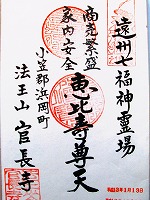 遠州七福神霊場
商売繁盛
家内安全
恵比寿尊天
小笠郡浜岡町
法王山 官長寺